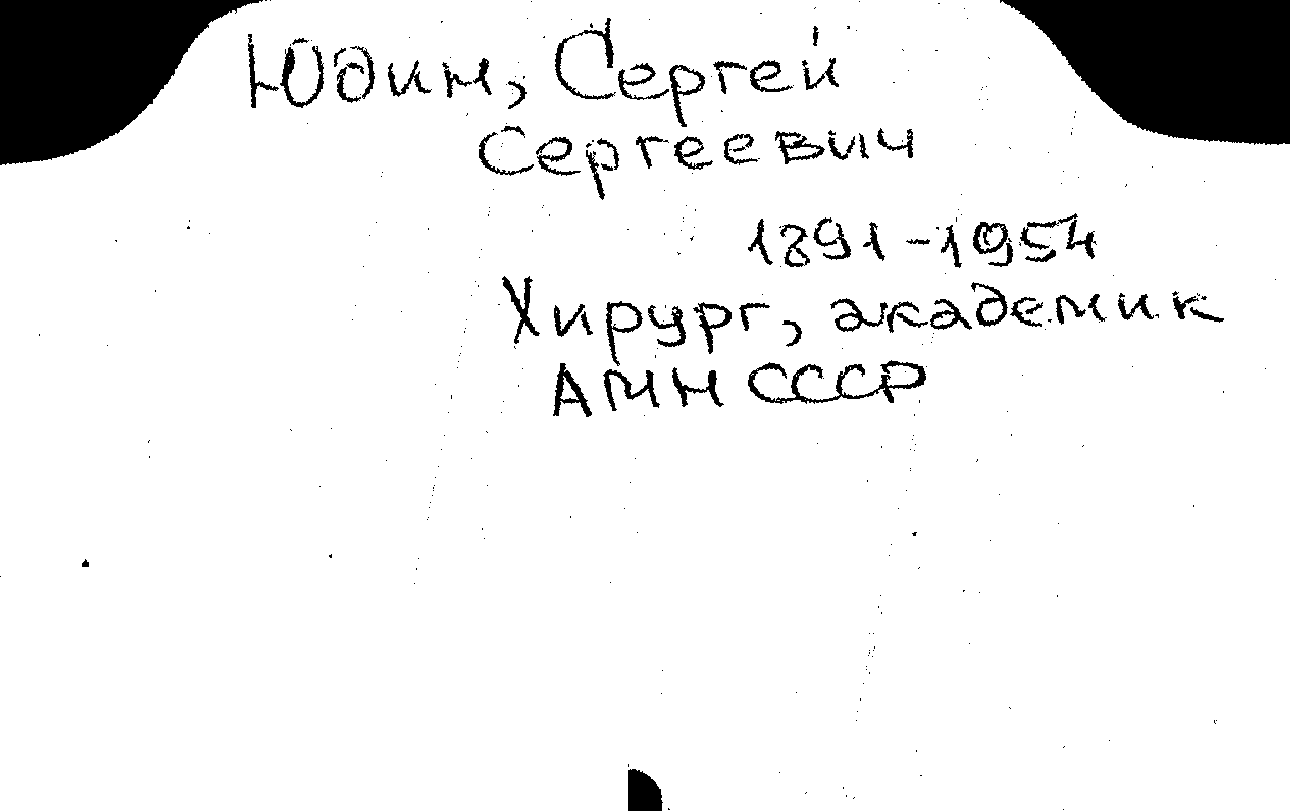 Юдин, Сергей
Сергеевич
1891-1954
Хирург, академик
АМН СССР